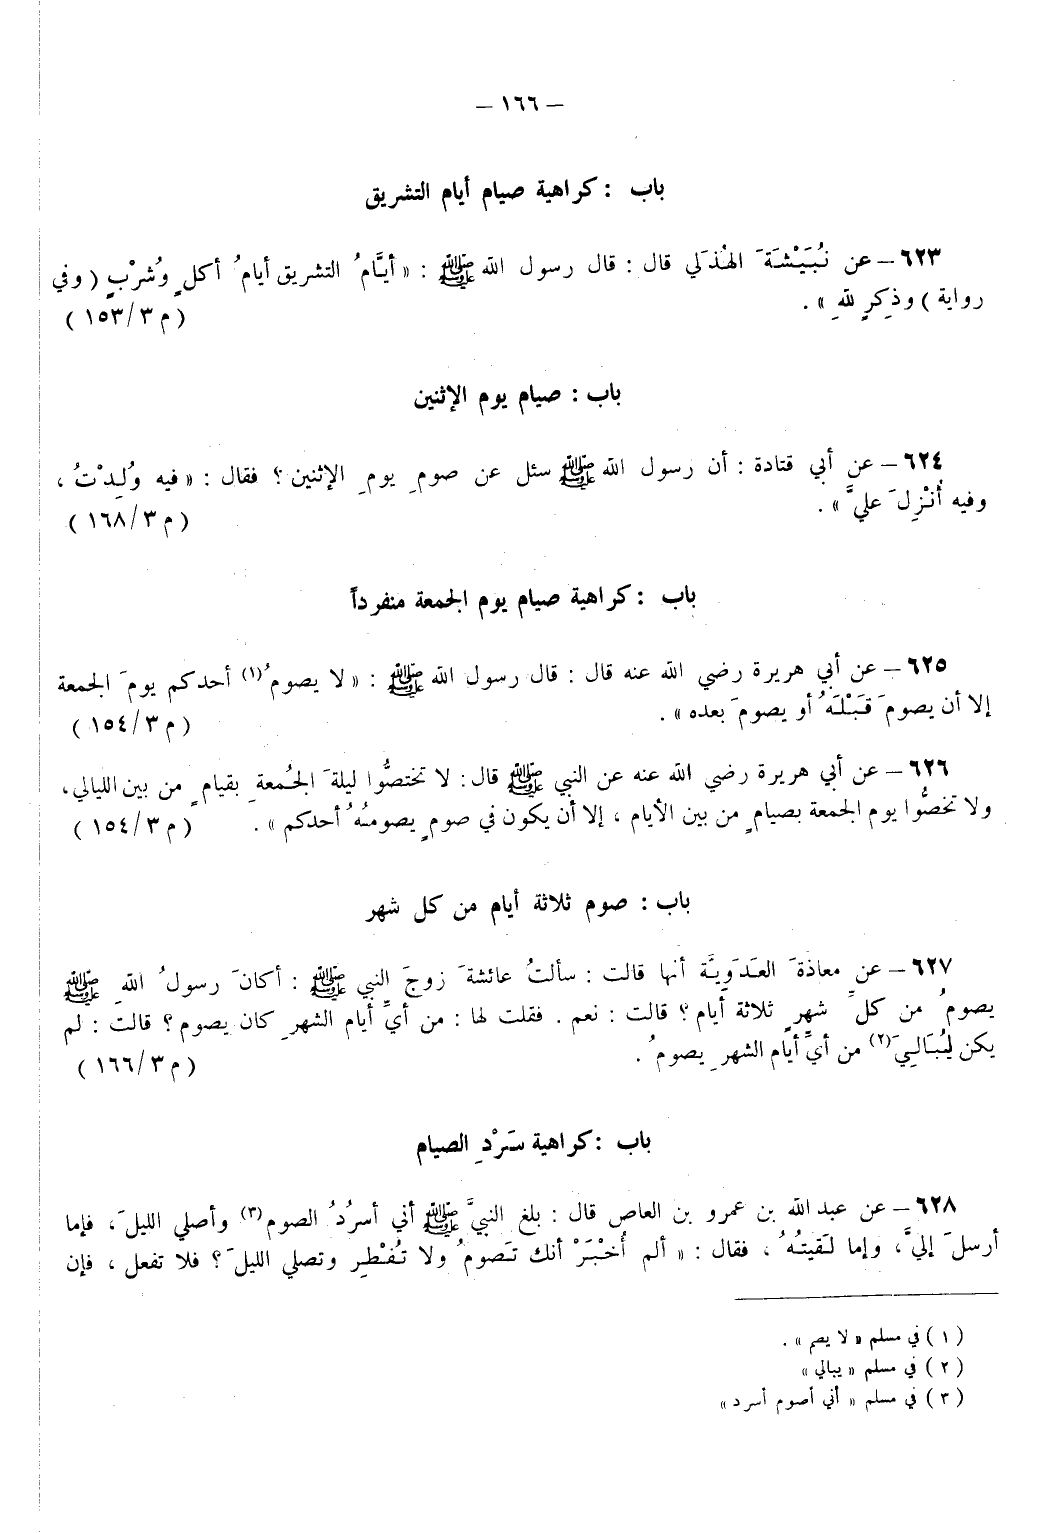 – ١٦٦ –
باب : كراهية صيام أيام التشريق
٦٢٣ – عن نُبَيْشَةَ الهُذَلي قال : قال رسول الله ﷺ : « أيَّامُ التشريق أيامُ أكلٍ وشُرْبٍ ( وفي
رواية ) وذِكرٍ للهِ » .
( م ٣/١٥٣ )
باب : صيام يوم الإثنين
٦٢٤ – عن أبي قتادة : أن رسول الله ﷺ سئل عن صومِ يومِ الإثنين ؟ فقال : « فيه وُلِدْتُ ،
وفيه أُنْزِلَ عليَّ » .
( م ٣/١٦٨ )
باب : كراهية صيام يوم الجمعة منفرداً
٦٢٥ – عن أبي هريرة رضي الله عنه قال : قال رسول الله ﷺ : « لا يصومُ(١) أحدكم يومَ الجمعة
إلا أن يصومَ قَبْلَهُ أو يصومَ بعده » .
( م ٣/١٥٤ )
٦٢٦ – عن أبي هريرة رضي الله عنه عن النبي ﷺ قال : لا تختصُّوا ليلةَ الجُمعةِ بقيامٍ من بين الليالي ،
ولا تخصُّوا يوم الجمعة بصيامٍ من بين الأيام ، إلا أن يكون في صومٍ يصومُهُ أحدكم » .
( م ٣/١٥٤ )
باب : صوم ثلاثة أيام من كل شهر
٦٢٧ – عن معاذةَ العَدَوِيَّة أنها قالت : سألتُ عائشةَ زوجَ النبي ﷺ : أكانَ رسولُ اللهِ ﷺ
يصومُ من كلِّ شهرٍ ثلاثة أيام ؟ قالت : نعم . فقلت لها : من أيِّ أيام الشهرِ كان يصوم ؟ قالت : لم
يكن لِيُبَالِيَ(٢) من أيِّ أيام الشهرِ يصومُ .
( م ٣/١٦٦ )
باب : كراهية سَرْدِ الصيام
٦٢٨ – عن عبد الله بن عمرو بن العاص قال : بلغ النبيَّ ﷺ أني أسرُدُ الصوم(٣) وأصلي الليلَ ، فإما
أرسلَ إليَّ ، وإما لَقيتُهُ ، فقال : « ألم أُخْبَرْ أنك تَصومُ ولا تُفْطِر وتصلي الليلَ ؟ فلا تفعل ، فإن
( ١ ) في مسلم « لا يصم » .
( ٢ ) في مسلم « يبالي »
( ٣ ) في مسلم « أني أصوم أسرد »